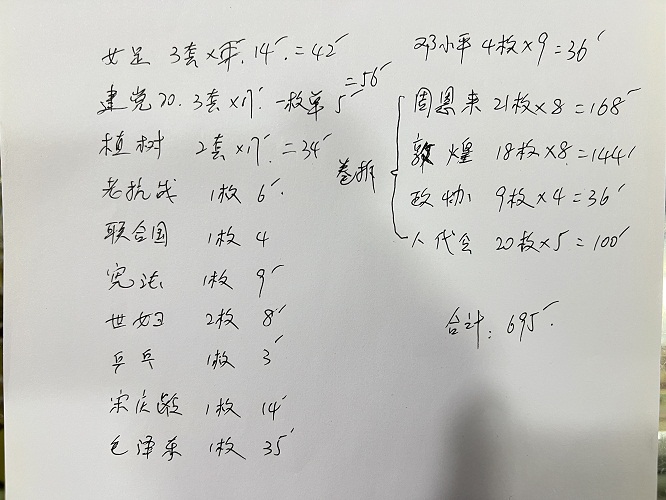 女足 3套×单.14.=42
建党70.3套×17.一枚单5=56
植树 2套×17.=34
老抗战 1枚 6.
联合国 1枚 4
宪法 1枚 9
世妇 2枚 8
乒乓 1枚 3
宋庆龄 1枚 14
毛泽东 1枚 35
邓小平 4枚×9=36
卷拆
周恩来 21枚×8=168
敦煌 18枚×8=144
政协 9枚×4=36
人代会 20枚×5=100
合计:695.